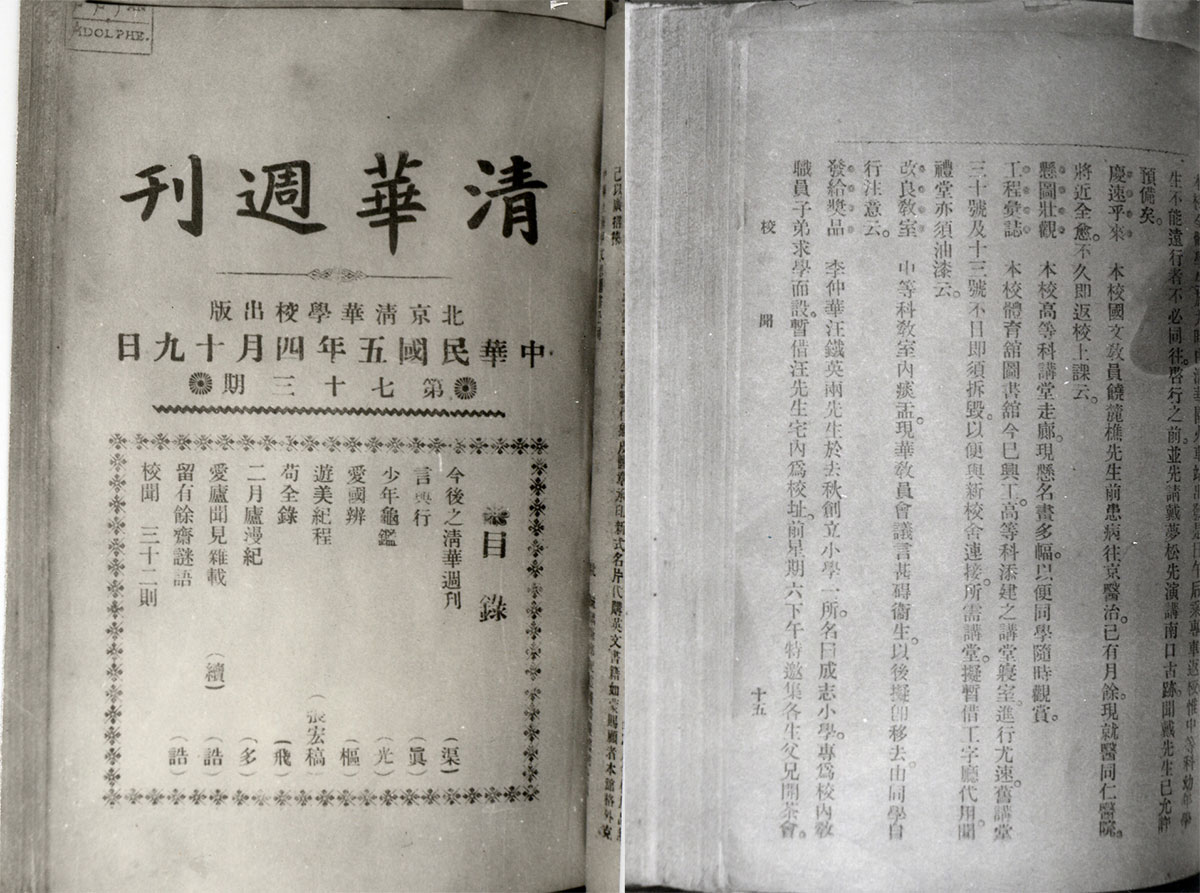 ADOLPHE.
清華週刊
北京清華學校出版
中華民國五年四月十九日
第七十三期
目錄
今後之清華週刊 (渠)
言與行 (眞)
少年龜鑑 (光)
愛國辨 (樞)
遊美紀程 (張宏稿)
苟全錄 (飛)
二月廬漫紀 (多)
愛廬聞見雜載 (續) (誥)
留有餘齋謎語 (誥)
校聞 三十二則
生不能遠行者不必同往。啓行之前。並先請戴夢松先演講南口古跡。聞戴先生已允許
預備矣。
慶遠乎來 本校國文敎員饒麓樵先生前患病往京醫治。已有月餘。現就醫同仁醫院。
將近全愈。不久即返校上課云。
懸圖壯觀 本校高等科講堂走廊。現懸名畫多幅。以便同學隨時觀賞。
工程彙誌 本校體育舘圖書舘今已興工。高等科添建之講堂寢室。進行尤速。舊講堂
三十號及十三號不日即須拆毀。以便與新校舍連接。所需講堂。擬暫借工字廳代用。聞
禮堂亦須油漆云。
改良敎室 中等科敎室內痰盂。現華敎員會議言甚碍衞生。以後擬卽移去。由同學自
行注意云。
發給獎品 李仲華汪鐵英兩先生於去秋創立小學一所。名曰成志小學。專爲校內敎
職員子弟求學而設。暫借汪先生宅內爲校址。前星期六下午特邀集各生父兄開茶會。
校聞
十五